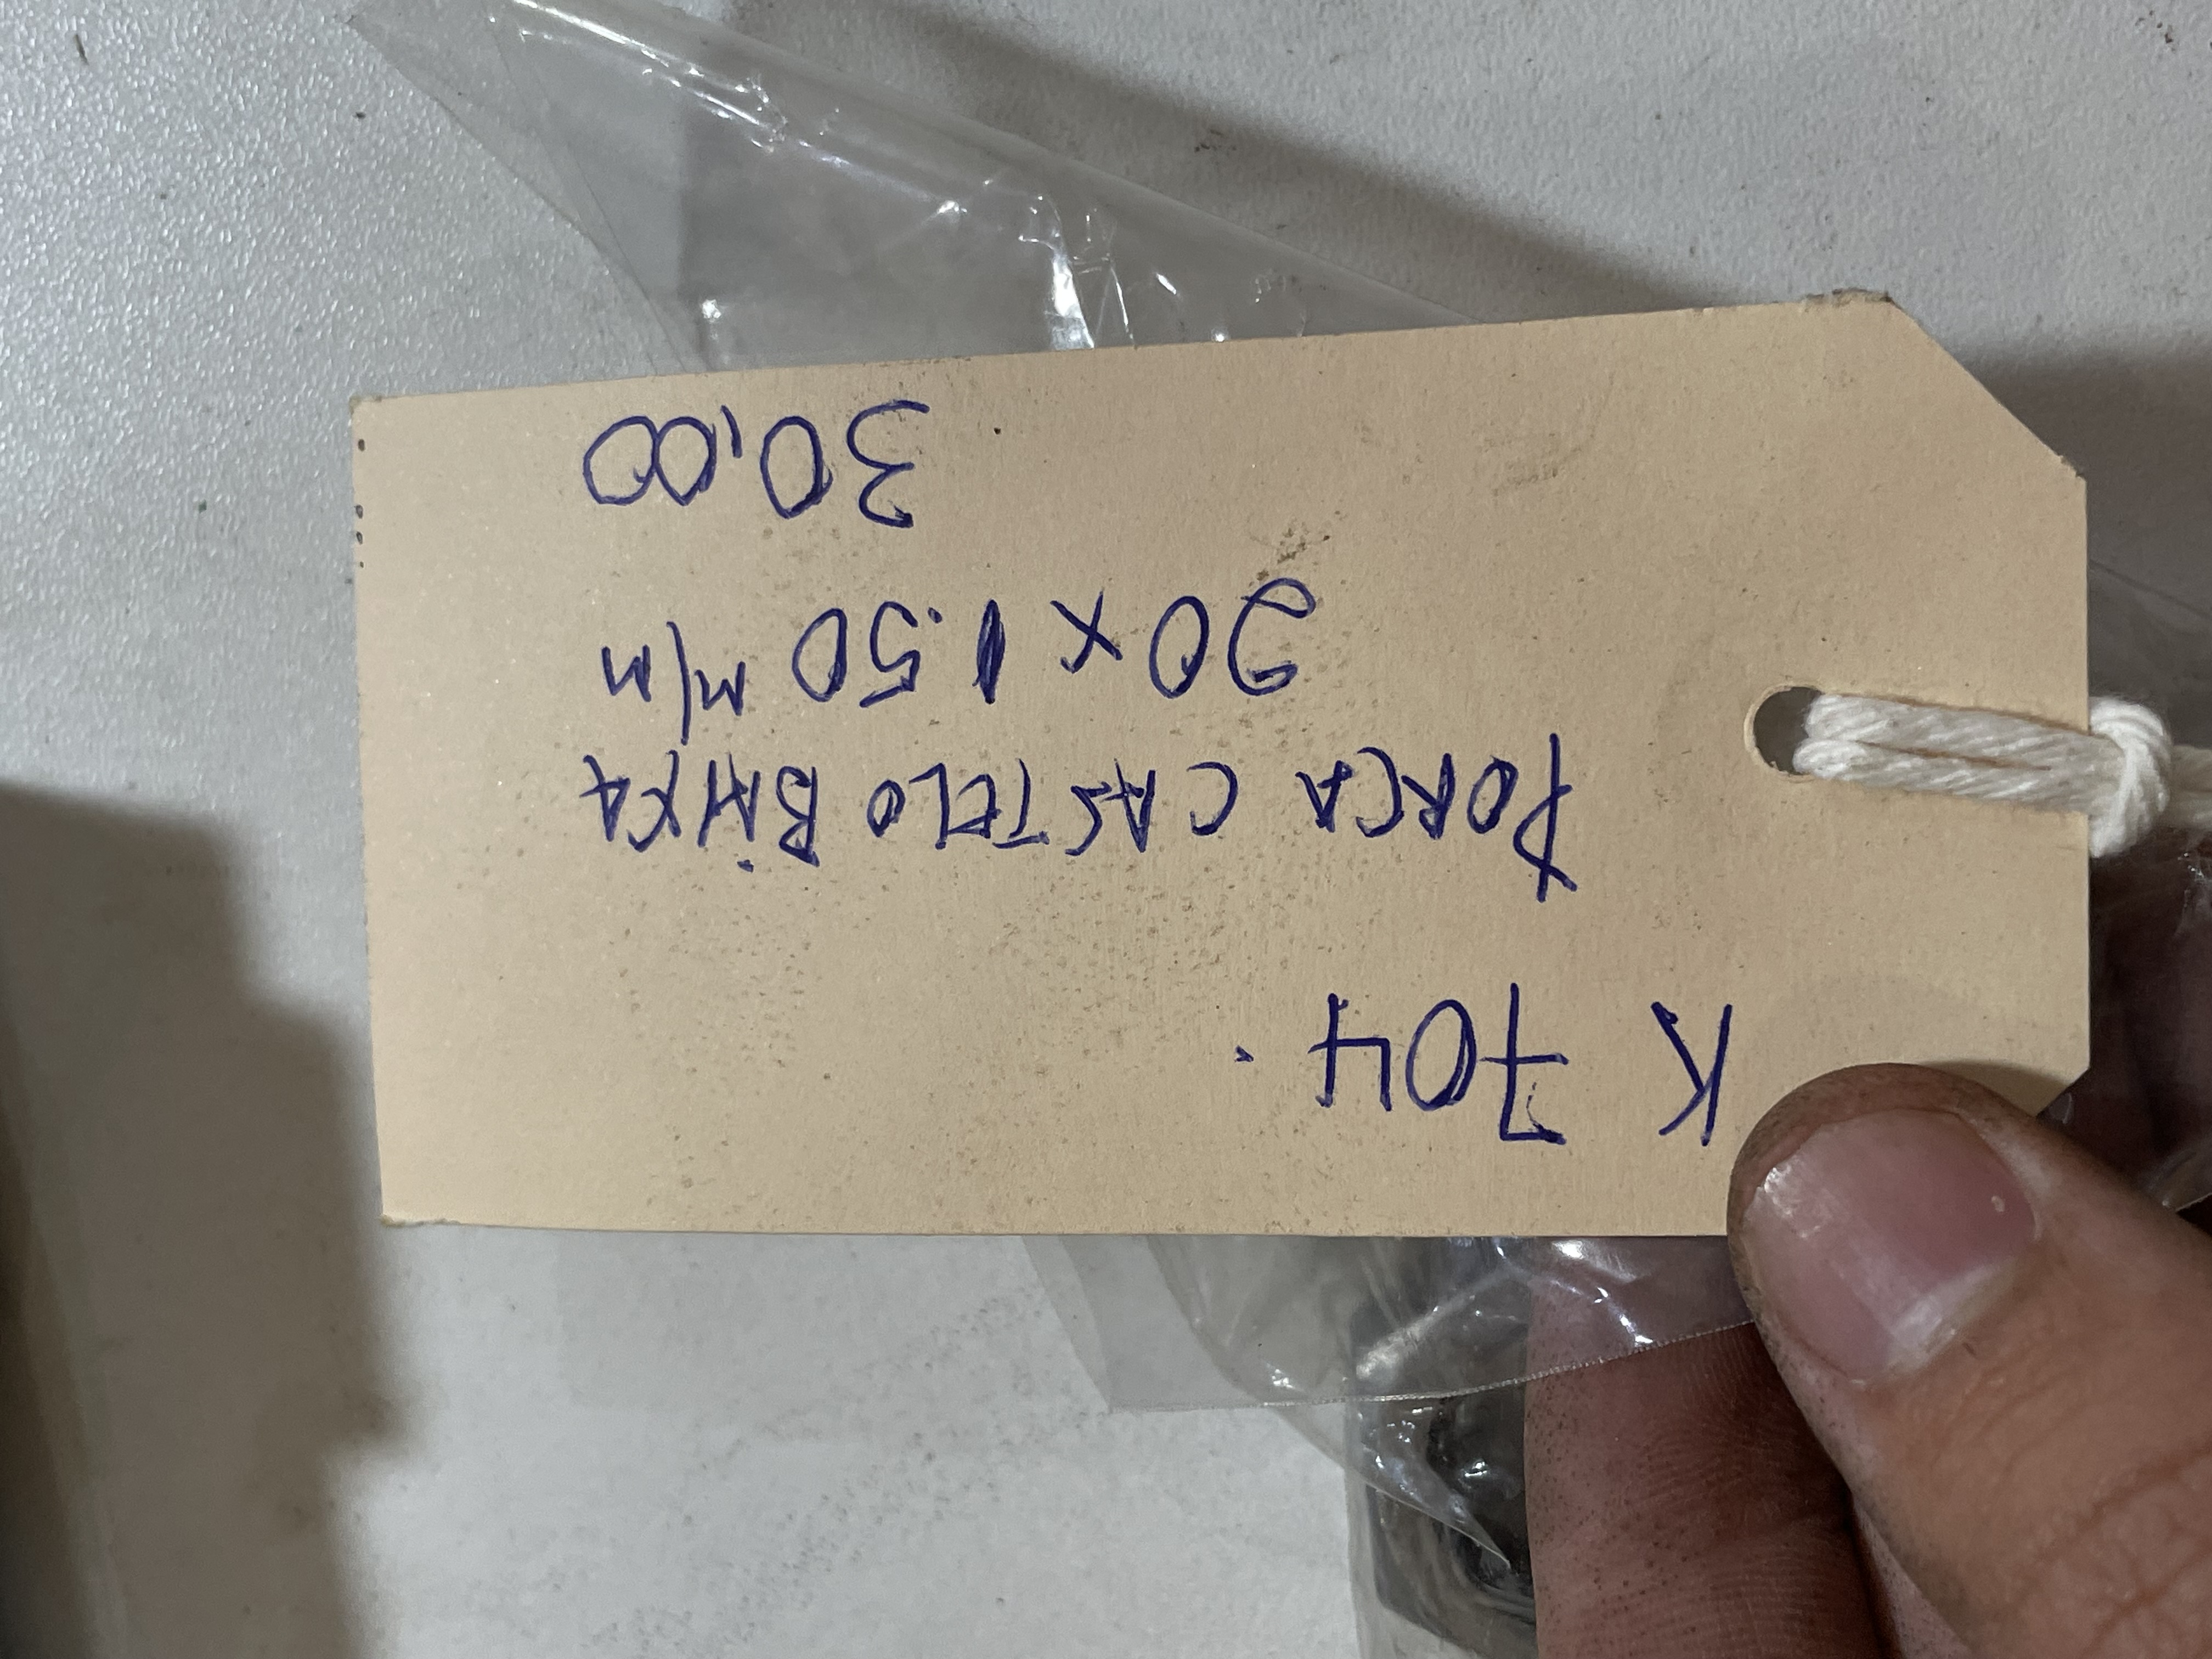 K 704.
PORCA CASTELO BAIXA
20 x 1.50 M/M
30,00